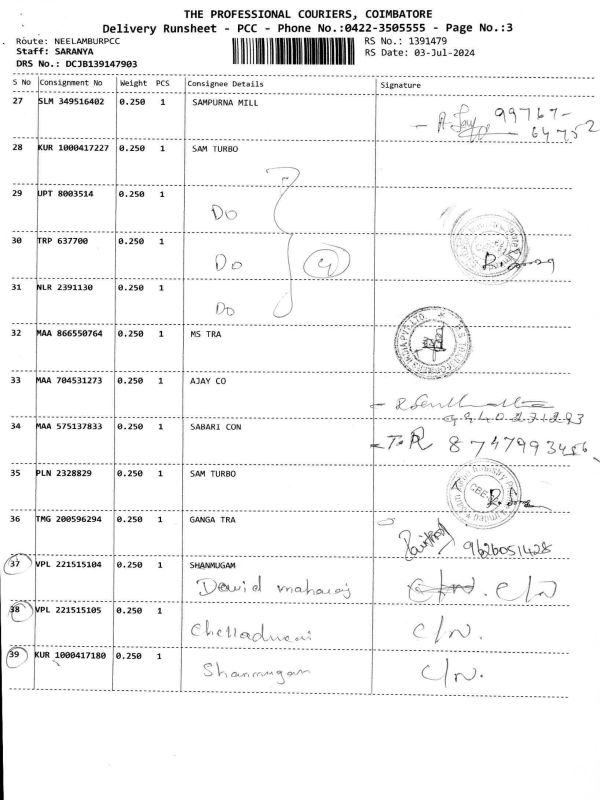 THE PROFESSIONAL COURIERS, COIMBATORE
Delivery Runsheet - PCC - Phone No.:0422-3505555 - Page No.:3
Route: NEELAMBURPCC RS No.: 1391479
Staff: SARANYA RS Date: 03-Jul-2024
DRS No.: DCJB139147903
S No Consignment No Weight PCS Consignee Details Signature
27 SLM 349516402 0.250 1 SAMPURNA MILL
99767-
64752
28 KUR 1000417227 0.250 1 SAM TURBO
29 UPT 8003514 0.250 1
Do
30 TRP 637700 0.250 1
Do
31 NLR 2391130 0.250 1
Do
32 MAA 866550764 0.250 1 MS TRA
33 MAA 704531273 0.250 1 AJAY CO
34 MAA 575137833 0.250 1 SABARI CON
T.R 8747993456
35 PLN 2328829 0.250 1 SAM TURBO
36 TMG 200596294 0.250 1 GANGA TRA
9626051428
37 VPL 221515104 0.250 1 SHANMUGAM
David maharaj C/N
38 VPL 221515105 0.250 1
Chelladurai C/N.
39 KUR 1000417180 0.250 1
Shanmugam C/N.